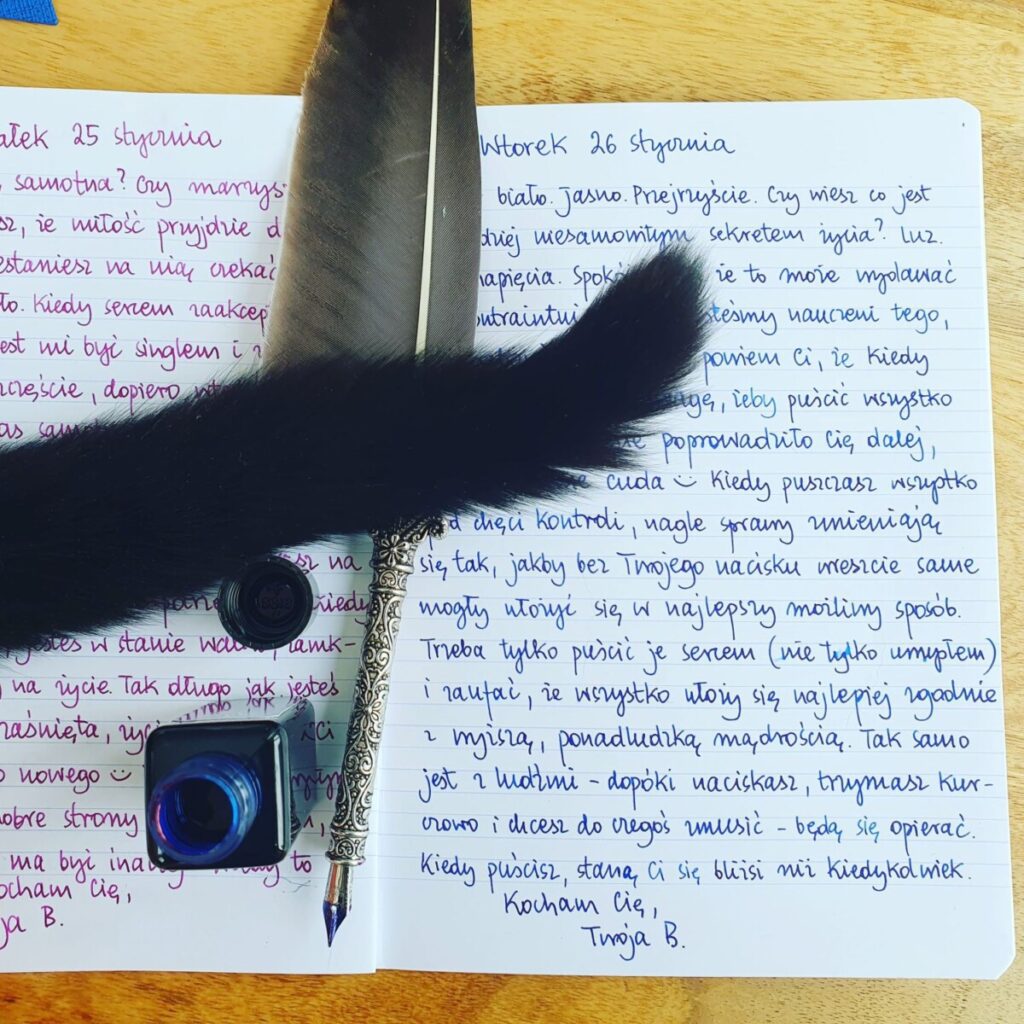 ałek 25 stycznia
samotna? Czy marzys
sz, że miłość przyjdzie d
estaniesz na nią czekać
ło. Kiedy sercem zaakcep
est mi być singlem i
zczęście, dopiero
as sam
sz na
kiedy
jesteś w stanie zamk-
na życie. Tak długo jak jesteś
zaśnięta, życi ci
o nowego ☺
dobre strony
ma być to
ocham Cię,
ja B.
Wtorek 26 stycznia
biało. Jasno. Przejrzyście. Czy wiesz co jest
dziej niesamowitym sekretem życia? Luz.
napięcia. Spok że to może wydawać
ontraintui steśmy nauczeni tego,
powiem Ci, że kiedy
agę, żeby puścić wszystko
poprowadziło Cię dalej,
cuda ☺ Kiedy puszczasz wszystko
od chęci kontroli, nagle sprawy zmieniają
się tak, jakby bez Twojego nacisku wreszcie same
mogły ułożyć się w najlepszy możliwy sposób.
Trzeba tylko puścić je sercem (nie tylko umysłem)
i zaufać, że wszystko ułoży się najlepiej zgodnie
z wyższą, ponadludzką mądrością. Tak samo
jest z ludźmi – dopóki naciskasz, trzymasz kur-
czowo i chcesz do czegoś zmusić – będą się opierać.
Kiedy puścisz, staną Ci się bliżsi niż kiedykolwiek.
Kocham Cię,
Twoja B.